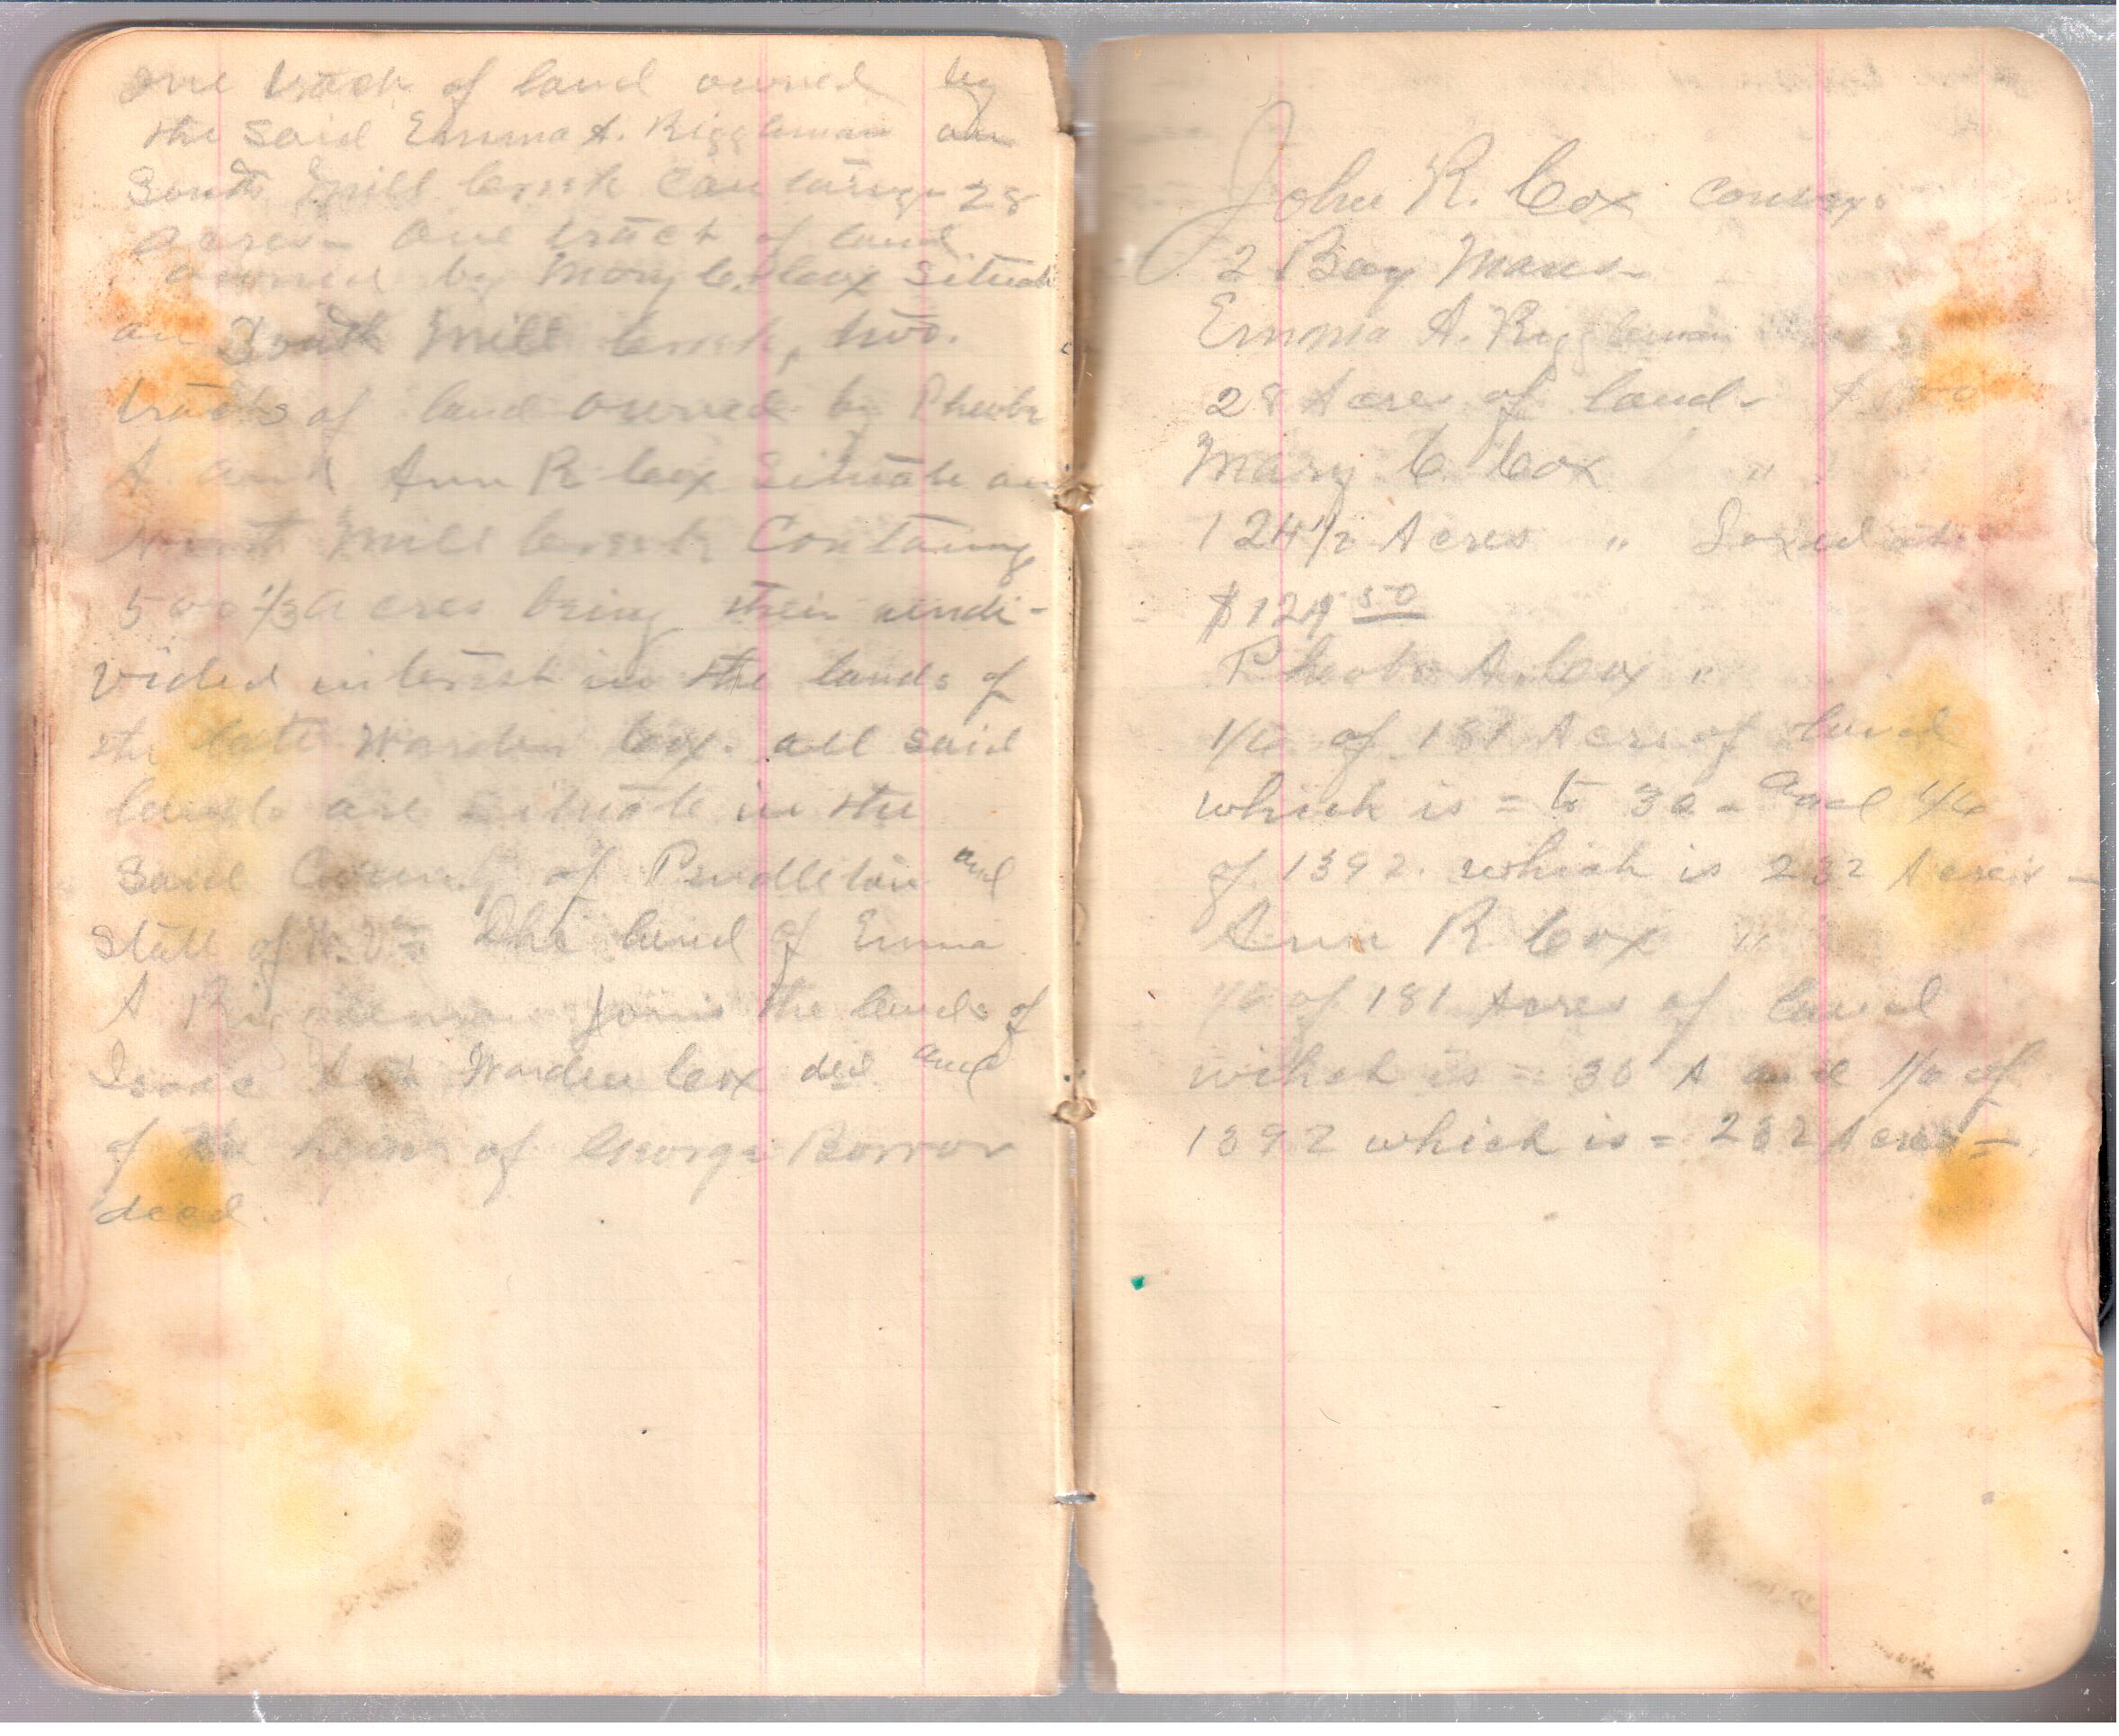 one track of land owned by
the said Emma A. Riggleman on
South Mill Creek Containge 28
acres - One tract of land
owned by Mary C. Cox Situate
on South Mill Creek, two.
tracts of land owned by Pheobe
A and Ann R Cox Situate on
Mill Creek Containing
500 1/3 acres being their undi-
vided interest in the lands of
the late Warden Cox. all said
lands are Situate in the
Said County of Pendleton and
State of W. Va The land of Emma
A Riggleman joins the lands of
Isaac Warden Cox and
of the heirs of George Borror
decd.
John R. Cox conveys
2 Bay Mares -
Emma A. Riggleman
28 Acres of land -
Mary C. Cox "
124 1/2 Acres "
$124 50
Pheobe A. Cox "
1/6 of 181 Acres of land
which is = to 30 - and 1/6
of 1392. which is 232 Acres -
Ann R Cox "
1/6 of 181 Acres of land
which is = 30 A and 1/6 of
1392 which is = 232 Acres -